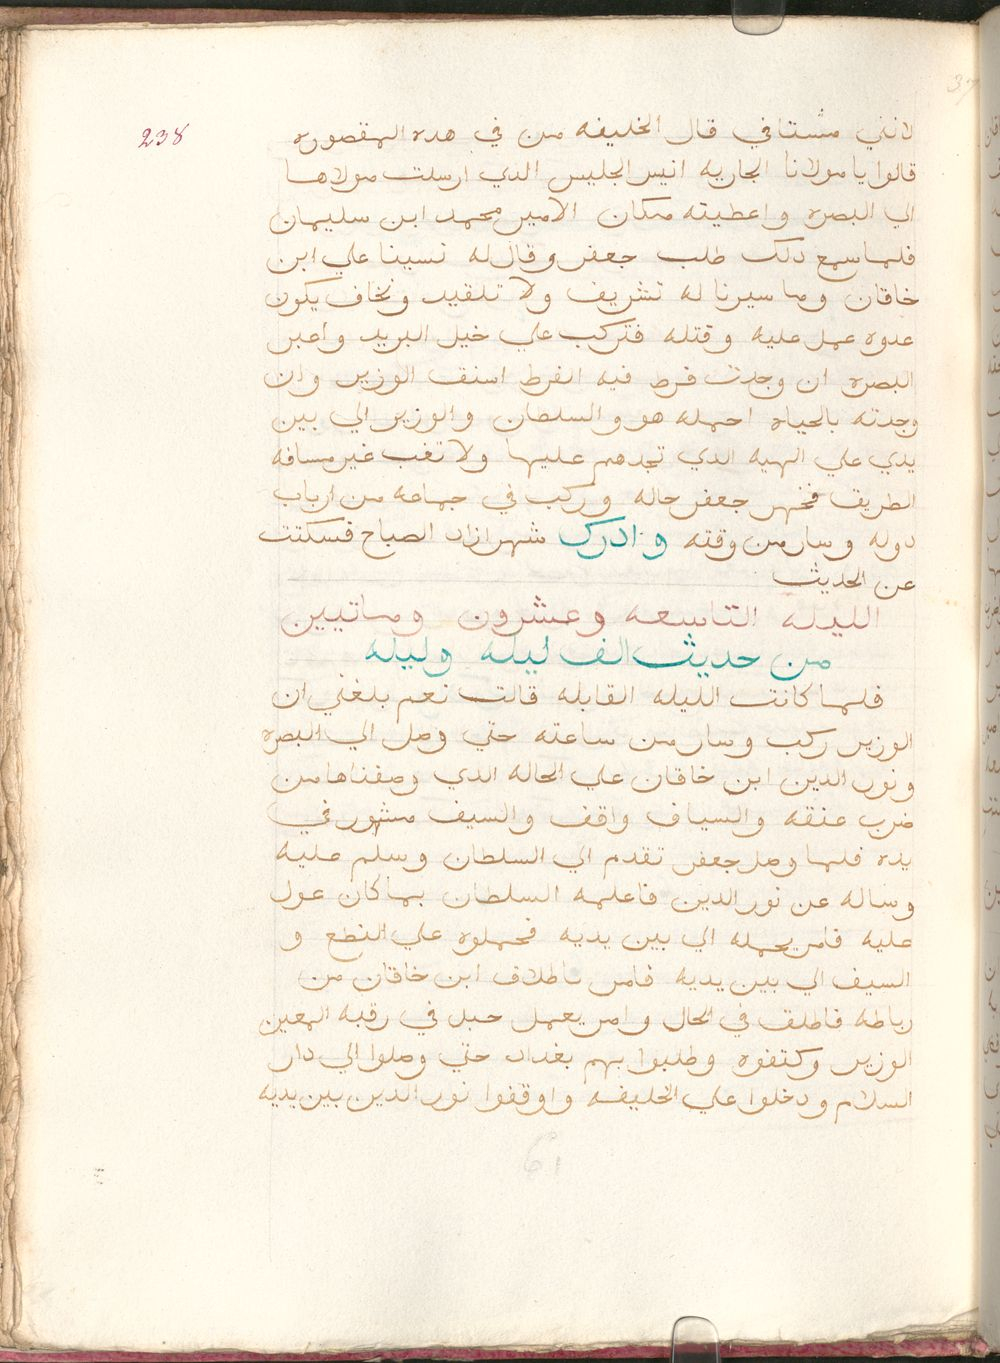 37
238
لانني مشتاقي قال الخليفه من في هده المقصوره
قالوا يا مولانا الجاريه انيس الجليس الدي ارسلت مولاها
الي البصره واعطيته مكان الامير محمد ابن سليمان
فلما سمع دلك طلب جعفر وقال له نسينا علي ابن
خاقان وما سيرنا له تشريف ولا تلقيد ونخاف يكون
عدوه عمل عليه وقتله فتركب علي خيل البريد واعبر
البصره ان وجدت فرط فيه الفرط اسنق الوزير وان
وجدته بالحياه احمله هو والسلطان والوزير الي بين
يدي علي الهيه الدي تجدهم عليها ولا تغب غير مسافه
الطريق فجهر جعفر حاله وركب في جماعه من ارباب
دوله وسار من وقته وادرك شهرازاد الصباح فسكتت
عن الحديث
الليله التاسعه وعشرون وماتيين
من حديث الف ليله وليله
فلما كانت الليله القابله قالت نعم بلغني ان
الوزير ركب وسار من ساعته حتي وصل الي البصره
ونور الدين ابن خاقان علي الحاله الدي وصفناها من
ضرب عنقه والسياف واقف والسيف مشهور في
يده فلما وصل جعفر تقدم الي السلطان وسلم عليه
وساله عن نور الدين فاعلمه السلطان بما كان عول
عليه فامر يحمله الي بين يديه فحملوه علي النطع و
السيف الي بين يديه فامر باطلاق ابن خاقان من
رباطه فاطلق في الحال وامر يعمل حبل في رقبه المعين
الوزير وكتفوه وطلبوا بهم بغداد حتي وصلوا الي دار
السلام ودخلوا علي الخليفه واوقفوا نور الدين بين يديه
61